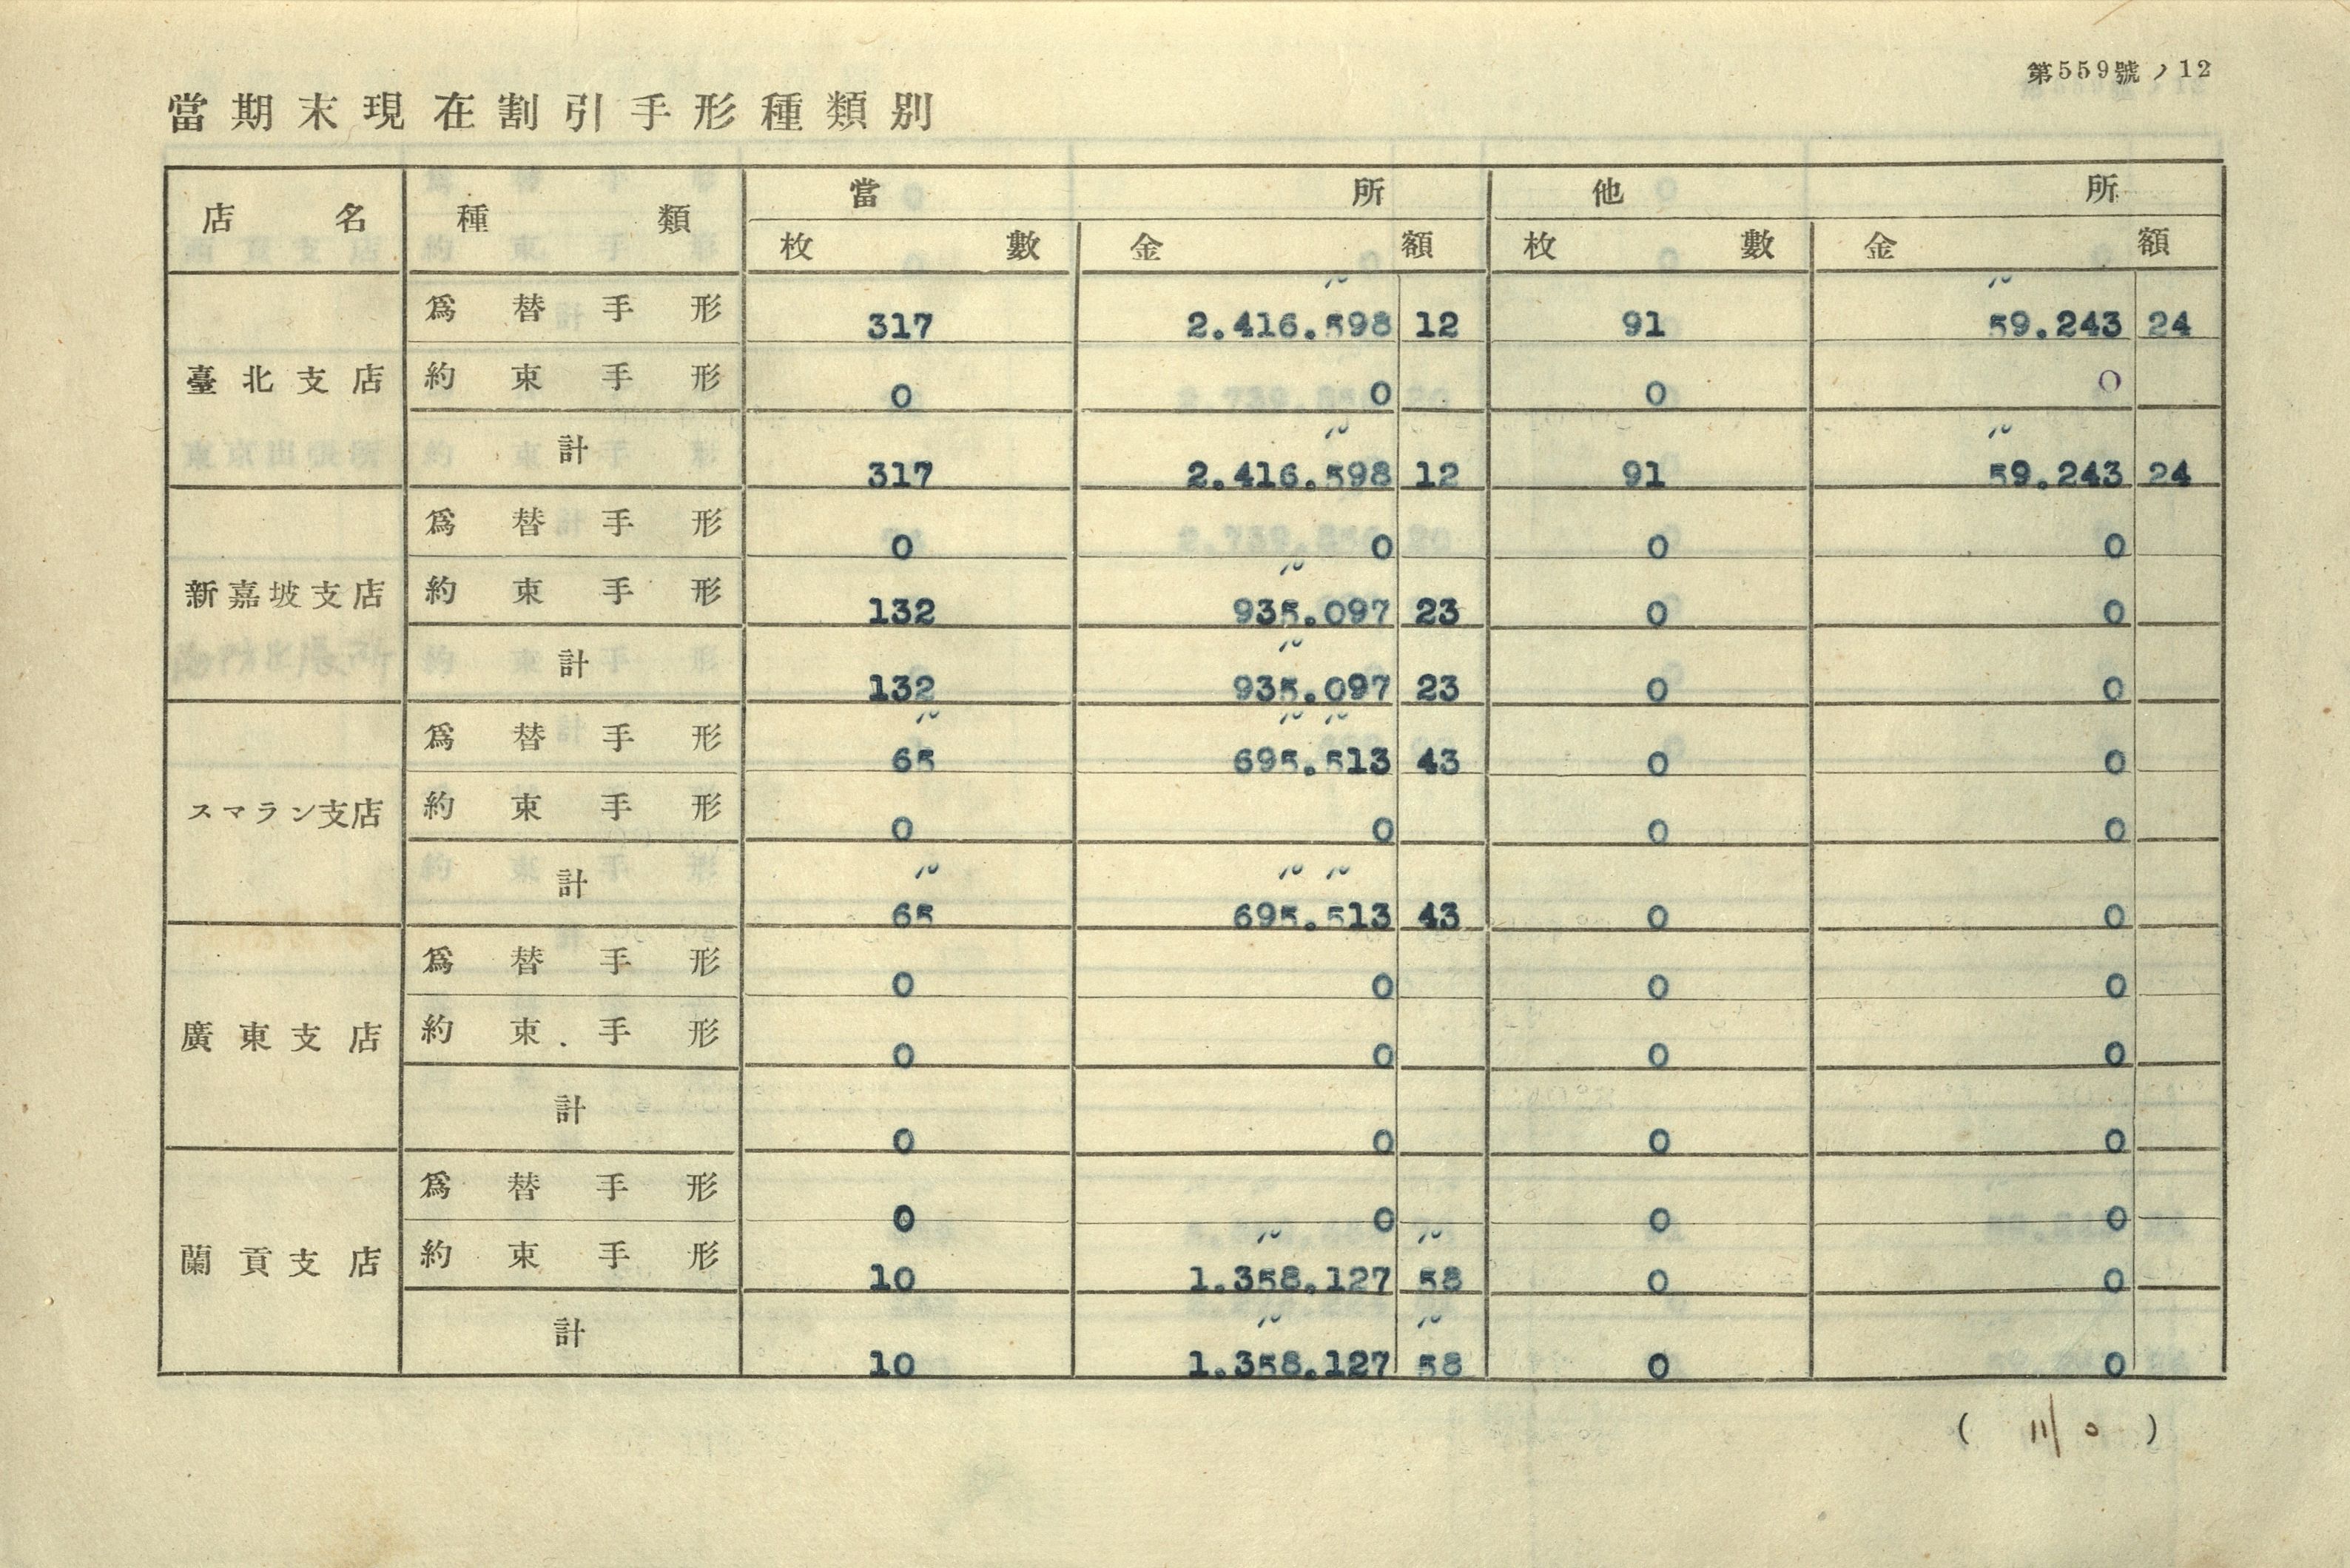 第559號ノ12
當期末現在割引手形種類別
店名 種類 當所 他所
枚數 金額 枚數 金額
爲替手形 317 2.416.598 12 91 59.243 24
臺北支店 約束手形 0 0 0 0
計 317 2.416.598 12 91 59.243 24
爲替手形 0 0 0 0
新嘉坡支店 約束手形 132 935.097 23 0 0
計 132 935.097 23 0 0
爲替手形 65 695.513 43 0 0
スマラン支店 約束手形 0 0 0 0
計 65 695.513 43 0 0
爲替手形 0 0 0 0
廣東支店 約束手形 0 0 0 0
計 0 0 0 0
爲替手形 0 0 0 0
蘭貢支店 約束手形 10 1.358.127 58 0 0
計 10 1.358.127 58 0 0